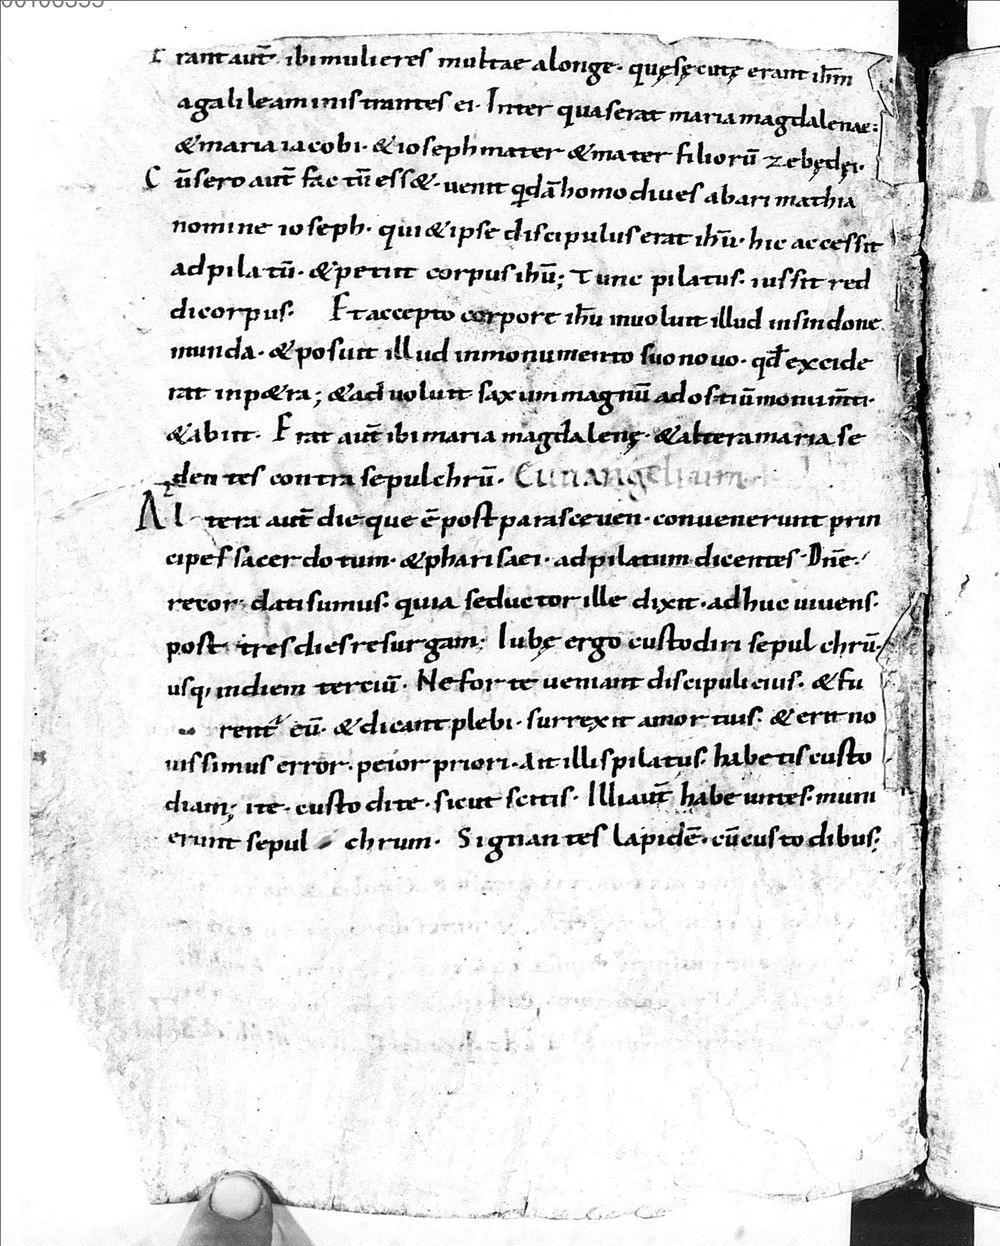 Erant aut̄ ibi mulieres multae alonge· quę sęcutę erant ih̄m
a galilea ministrantes ei· Inter quas erat maria magdalenae:
& maria iacobi· & ioseph mater & mater filiorū zebędęi·
Cū sero aut̄ factū ess&· uenit qdā homo diues ab arimathia
nomine ioseph· qui & ipse discipulus erat ih̄u· hic accessit
ad pilatū· & petiit corpus ih̄u; Tunc pilatus· iussit red
di corpus· Et accepto corpore ih̄u inuoluit illud in sindone
munda· & posuit illud in monumento suo nouo· qd̄ excide
rat in p&ra; & aduoluit saxum magnū ad ostiū monum̄ti·
& abiit· Erat aut̄ ibi maria magdalenę· & altera maria se
dentes contra sepulchrū·
Altera aut̄ die que ē post parasceuen· conuenerunt prin
cipes sacerdotum· & pharisaei· ad pilatum dicentes· Dn̄e·
recordati sumus· quia seductor ille dixit· adhuc uiuens·
post tres dies resurgam; Iubę ergo custodiri sepulchrū·
usq; in diem terciū· Ne forte ueniant discipuli eius· & fu
rent eū· & dicant plebi· surrexit a mortuis· & erit no
uissimus error· peior priori· Ait illis pilatus· habetis custo
diam; ite· custodite· sicut scitis· Illi aut̄ habeuntes· muni
erunt sepulchrum· Signantes lapidē· cū custodibus;